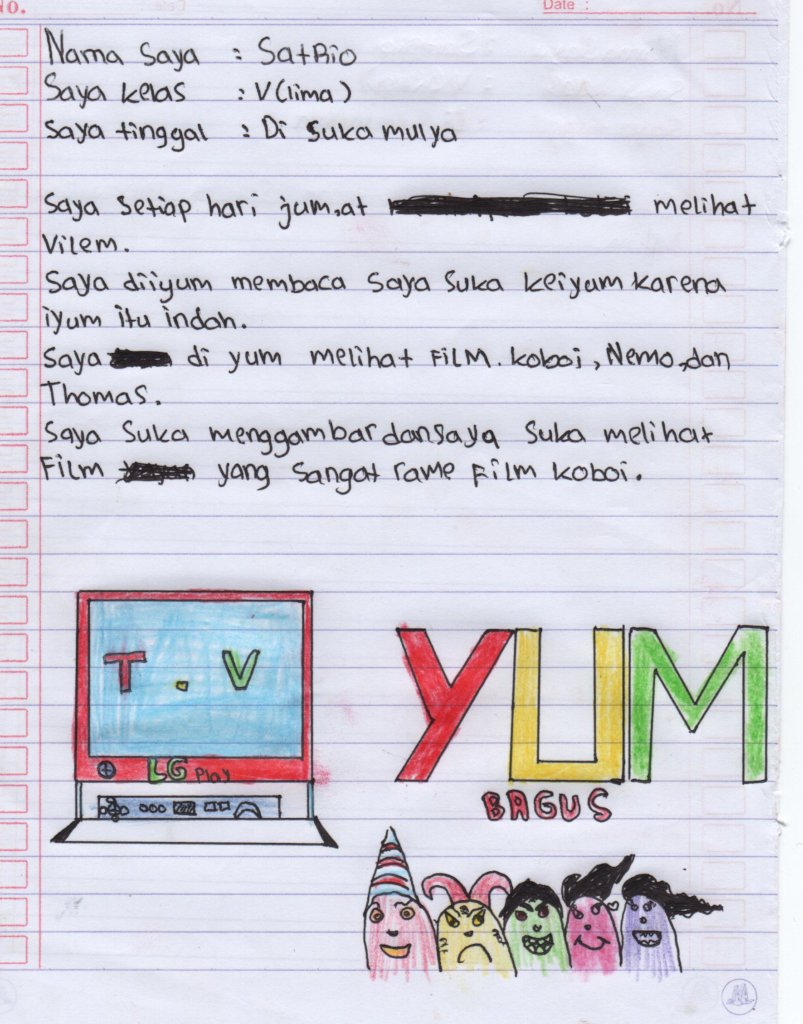 No.
Date :
Nama saya : Satrio
Saya kelas : V (lima)
Saya tinggal : Di Sukamulya
Saya setiap hari jum,at melihat
Vilem.
Saya diiyum membaca saya suka keiyum karena
iyum itu indah.
Saya di yum melihat FiLM. koboi, Nemo, dan
Thomas.
Saya suka menggambar dansaya suka melihat
FiLM yang sangat rame FiLM koboi.
T.V
LG Play
YUM
BAGUS